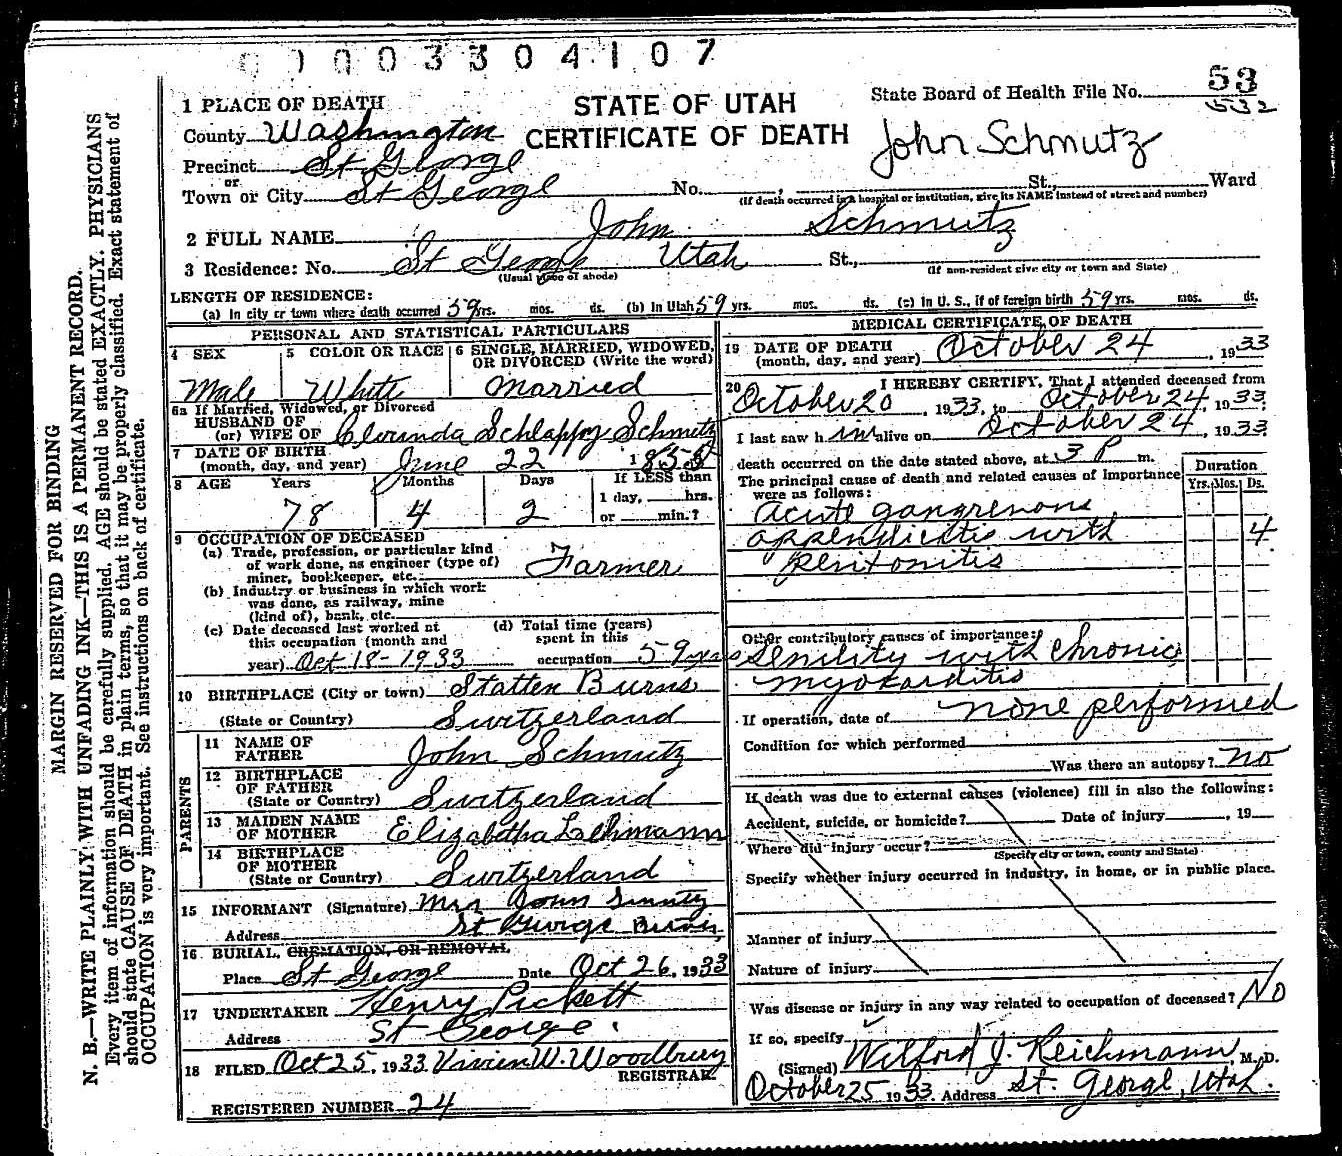 0003304107
53
532
1 PLACE OF DEATH
STATE OF UTAH
CERTIFICATE OF DEATH
State Board of Health File No.
John Schmutz
County Washington
Precinct St George
or
Town or City St George No. , St., Ward
(If death occurred in a hospital or institution, give its NAME instead of street and number)
2 FULL NAME John Schmutz
3 Residence: No. St George Utah St.,
(Usual place of abode) (If non-resident give city or town and State)
LENGTH OF RESIDENCE:
(a) In city or town where death occurred 59 yrs. mos. ds. (b) In Utah 59 yrs. mos. ds. (c) in U. S., if of foreign birth 59 yrs. mos. ds.
PERSONAL AND STATISTICAL PARTICULARS
4 SEX
Male
5 COLOR OR RACE
White
6 SINGLE, MARRIED, WIDOWED,
OR DIVORCED (Write the word)
Married
6a If Married, Widowed, or Divorced
HUSBAND OF
(or) WIFE OF Clorinda Schlappy Schmutz
7 DATE OF BIRTH
(month, day, and year) June 22 1855
8 AGE Years Months Days If LESS than
1 day, hrs.
or min.?
78 4 2
9 OCCUPATION OF DECEASED
(a) Trade, profession, or particular kind
of work done, as engineer (type of)
miner, bookkeeper, etc. Farmer
(b) Industry or business in which work
was done, as railway, mine
(kind of), bank, etc.
(c) Date deceased last worked at
this occupation (month and
year) Oct-18-1933
(d) Total time (years)
spent in this
occupation 59 yrs
10 BIRTHPLACE (City or town) Statten Burns
(State or Country) Switzerland
PARENTS
11 NAME OF
FATHER John Schmutz
12 BIRTHPLACE
OF FATHER
(State or Country) Switzerland
13 MAIDEN NAME
OF MOTHER Elizabetha Lehmann
14 BIRTHPLACE
OF MOTHER
(State or Country) Switzerland
15 INFORMANT (Signature) Mrs John
Address St George
16 BURIAL, CREMATION, OR REMOVAL
Place St George Date Oct 26, 1933
17 UNDERTAKER Henry Pickett
Address St George
18 FILED Oct 25, 1933 Vivian W. Woodbury
REGISTRAR.
REGISTERED NUMBER 24
MEDICAL CERTIFICATE OF DEATH
19 DATE OF DEATH
(month, day, and year) October 24, 1933
20 I HEREBY CERTIFY, That I attended deceased from
October 20, 1933, to October 24, 1933.
I last saw him alive on October 24, 1933
death occurred on the date stated above, at 3 P m.
The principal cause of death and related causes of importance
were as follows:
Duration
Yrs. Mos. Ds.
acute gangrenous
appendicitis with 4
peritonitis
Other contributory causes of importance:
Senility with chronic
myokarditis
If operation, date of none performed
Condition for which performed
Was there an autopsy? no
If death was due to external causes (violence) fill in also the following:
Accident, suicide, or homicide? Date of injury , 19
Where did injury occur?
(Specify city or town, county and State)
Specify whether injury occurred in industry, in home, or in public place.
Manner of injury
Nature of injury
Was disease or injury in any way related to occupation of deceased? No
If so, specify
(Signed) Wilford J. Reichmann, M. D.
October 25 1933 Address St. George, Utah.
MARGIN RESERVED FOR BINDING
N. B.—WRITE PLAINLY, WITH UNFADING INK—THIS IS A PERMANENT RECORD.
Every item of information should be carefully supplied. AGE should be stated EXACTLY. PHYSICIANS
should state CAUSE OF DEATH in plain terms, so that it may be properly classified. Exact statement of
OCCUPATION is very important. See instructions on back of certificate.